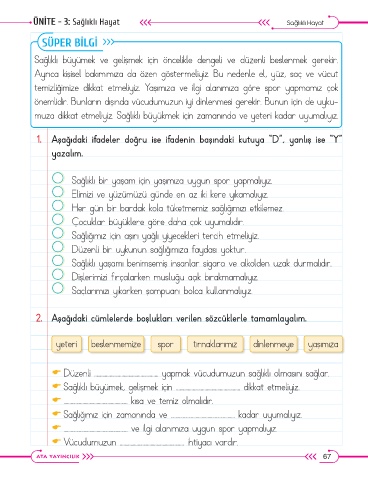 ÜNİTE - 3: Sağlıklı Hayat
Sağlıklı Hayat
SÜPER BİLGİ
Sağlıklı büyümek ve gelişmek için öncelikle dengeli ve düzenli beslenmek gerekir.
Ayrıca kişisel bakımımıza da özen göstermeliyiz. Bu nedenle el, yüz, saç ve vücut
temizliğimize dikkat etmeliyiz. Yaşımıza ve ilgi alanımıza göre spor yapmamız çok
önemlidir. Bunların dışında vücudumuzun iyi dinlenmesi gerekir. Bunun için de uyku-
muza dikkat etmeliyiz. Sağlıklı büyümek için zamanında ve yeteri kadar uyumalıyız.
1. Aşağıdaki ifadeler doğru ise ifadenin başındaki kutuya "D", yanlış ise "Y"
yazalım.
Sağlıklı bir yaşam için yaşımıza uygun spor yapmalıyız.
Elimizi ve yüzümüzü günde en az iki kere yıkamalıyız.
Her gün bir bardak kola tüketmemiz sağlığımızı etkilemez.
Çocuklar büyüklere göre daha çok uyumalıdır.
Sağlığımız için aşırı yağlı yiyecekleri tercih etmeliyiz.
Düzenli bir uykunun sağlığımıza faydası yoktur.
Sağlıklı yaşamı benimsemiş insanlar sigara ve alkolden uzak durmalıdır.
Dişlerimizi fırçalarken musluğu açık bırakmamalıyız.
Saçlarımızı yıkarken şampuanı bolca kullanmalıyız.
2. Aşağıdaki cümlelerde boşlukları verilen sözcüklerle tamamlayalım.
yeteri beslenmemize spor tırnaklarımız dinlenmeye yaşımıza
Düzenli ........................ yapmak vücudumuzun sağlıklı olmasını sağlar.
Sağlıklı büyümek, gelişmek için ........................ dikkat etmeliyiz.
........................ kısa ve temiz olmalıdır.
Sağlığımız için zamanında ve ........................ kadar uyumalıyız.
........................ ve ilgi alanımıza uygun spor yapmalıyız.
Vücudumuzun ........................ ihtiyacı vardır.
ATA YAYINCILIK
67